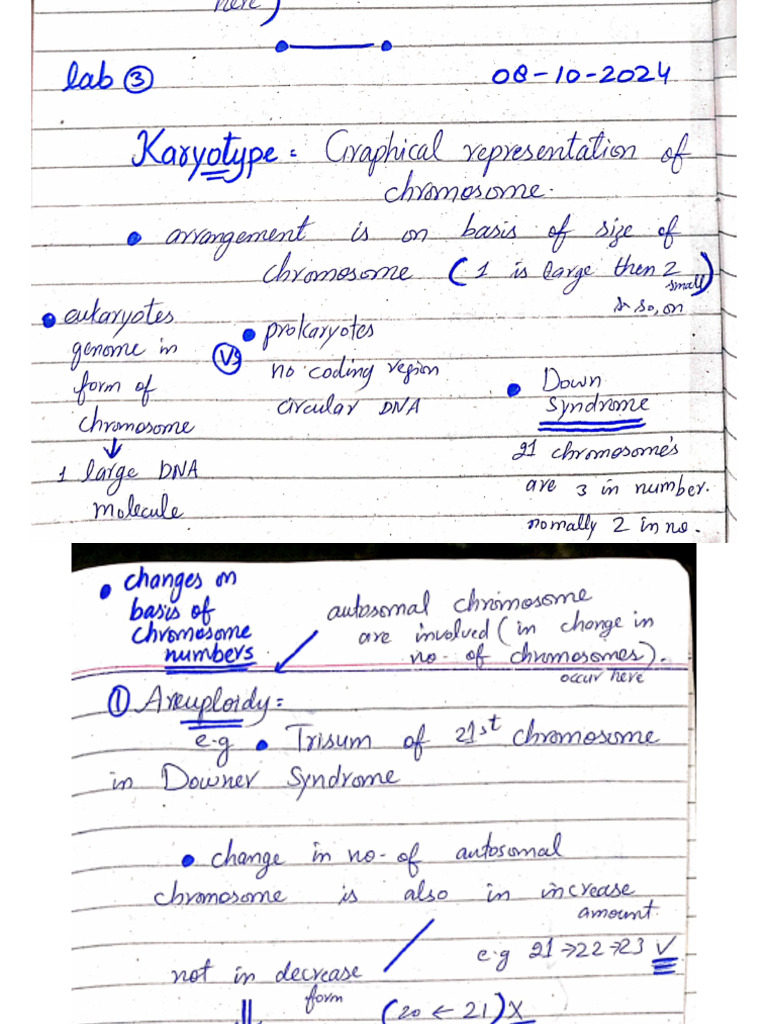 here)
lab ③ 08-10-2024
Karyotype = Graphical representation of
chromosome.
• arrangement is on basis of size of
chromosome (1 is large then 2
small)
& so, on
• eukaryotes
genome in
form of
chromosome
↓
1 large DNA
molecule
Vs
• prokaryotes
no coding region
circular DNA
• Down
Syndrome
21 chromosome's
are 3 in number.
nomally 2 in no.
• changes on
basis of
chromosome
numbers
autosomal chromosome
are involved (in change in
no. of chromosomes).
occur here
① Aneuploidy =
e.g • Trisum of 21st chromosome
in Downer Syndrome
• change in no. of autosomal
chromosome is also in increase
amount.
e.g 21→22→23 ✓
not in decrease
form
(20 ← 21) X